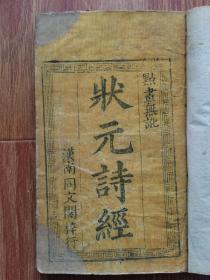 點畫無訛
狀元詩經
漢南同文閣梓行